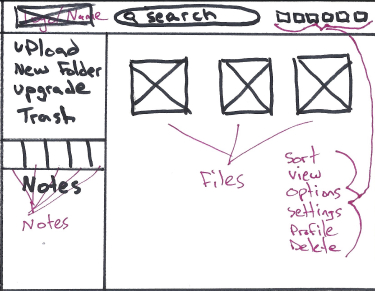 Logo/Name
search
upload
New Folder
upgrade
Trash
Notes
Notes
Files
Sort
view
options
settings
Profile
Delete